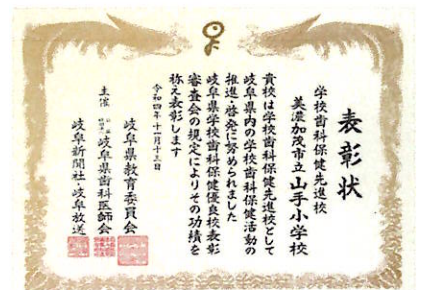 表彰状
学校歯科保健先進校
美濃加茂市立山手小学校
貴校は学校歯科保健先進校として
岐阜県内の学校歯科保健活動の
推進・啓発に努められました
岐阜県学校歯科保健優良校表彰
審査会の規定によりその功績を
称え表彰します
令和四年十一月十三日
岐阜県教育委員会
主催
岐阜県歯科医師会
岐阜新聞社・岐阜放送